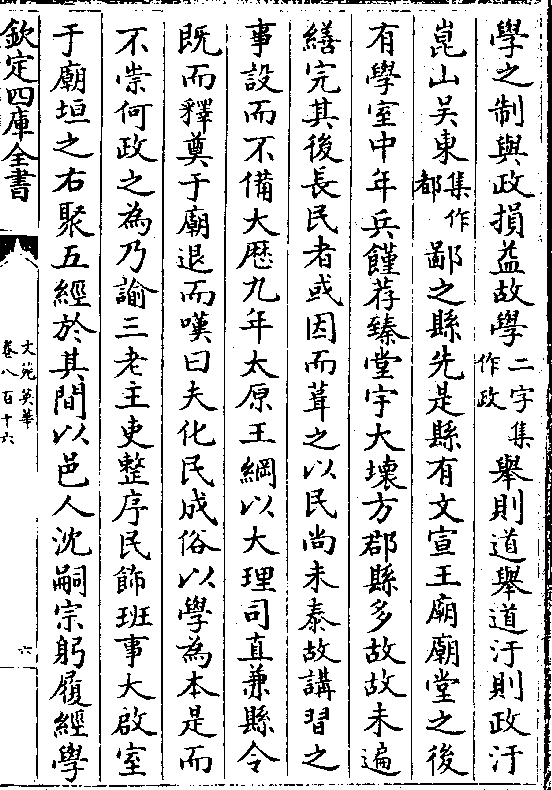 學之制與政損益故學二字集作政舉則道舉道汙則政汙
崑山吴東集作都鄙之縣先是縣有文宣王廟廟堂之後
有學室中年兵饉荐臻堂宇大壞方郡縣多故故未遍
繕完其後長民者或因而葺之以民尚未泰故講習之
事設而不備大歴九年太原王綱以大理司直兼縣令
既而釋奠于廟退而嘆曰夫化民成俗以學為本是而
不崇何政之為乃諭三老主吏整序民飾班事大啟室
于廟垣之右聚五經於其間以邑人沈嗣宗躬履經學
欽定四庫全書
文苑英華
卷八百十六
六